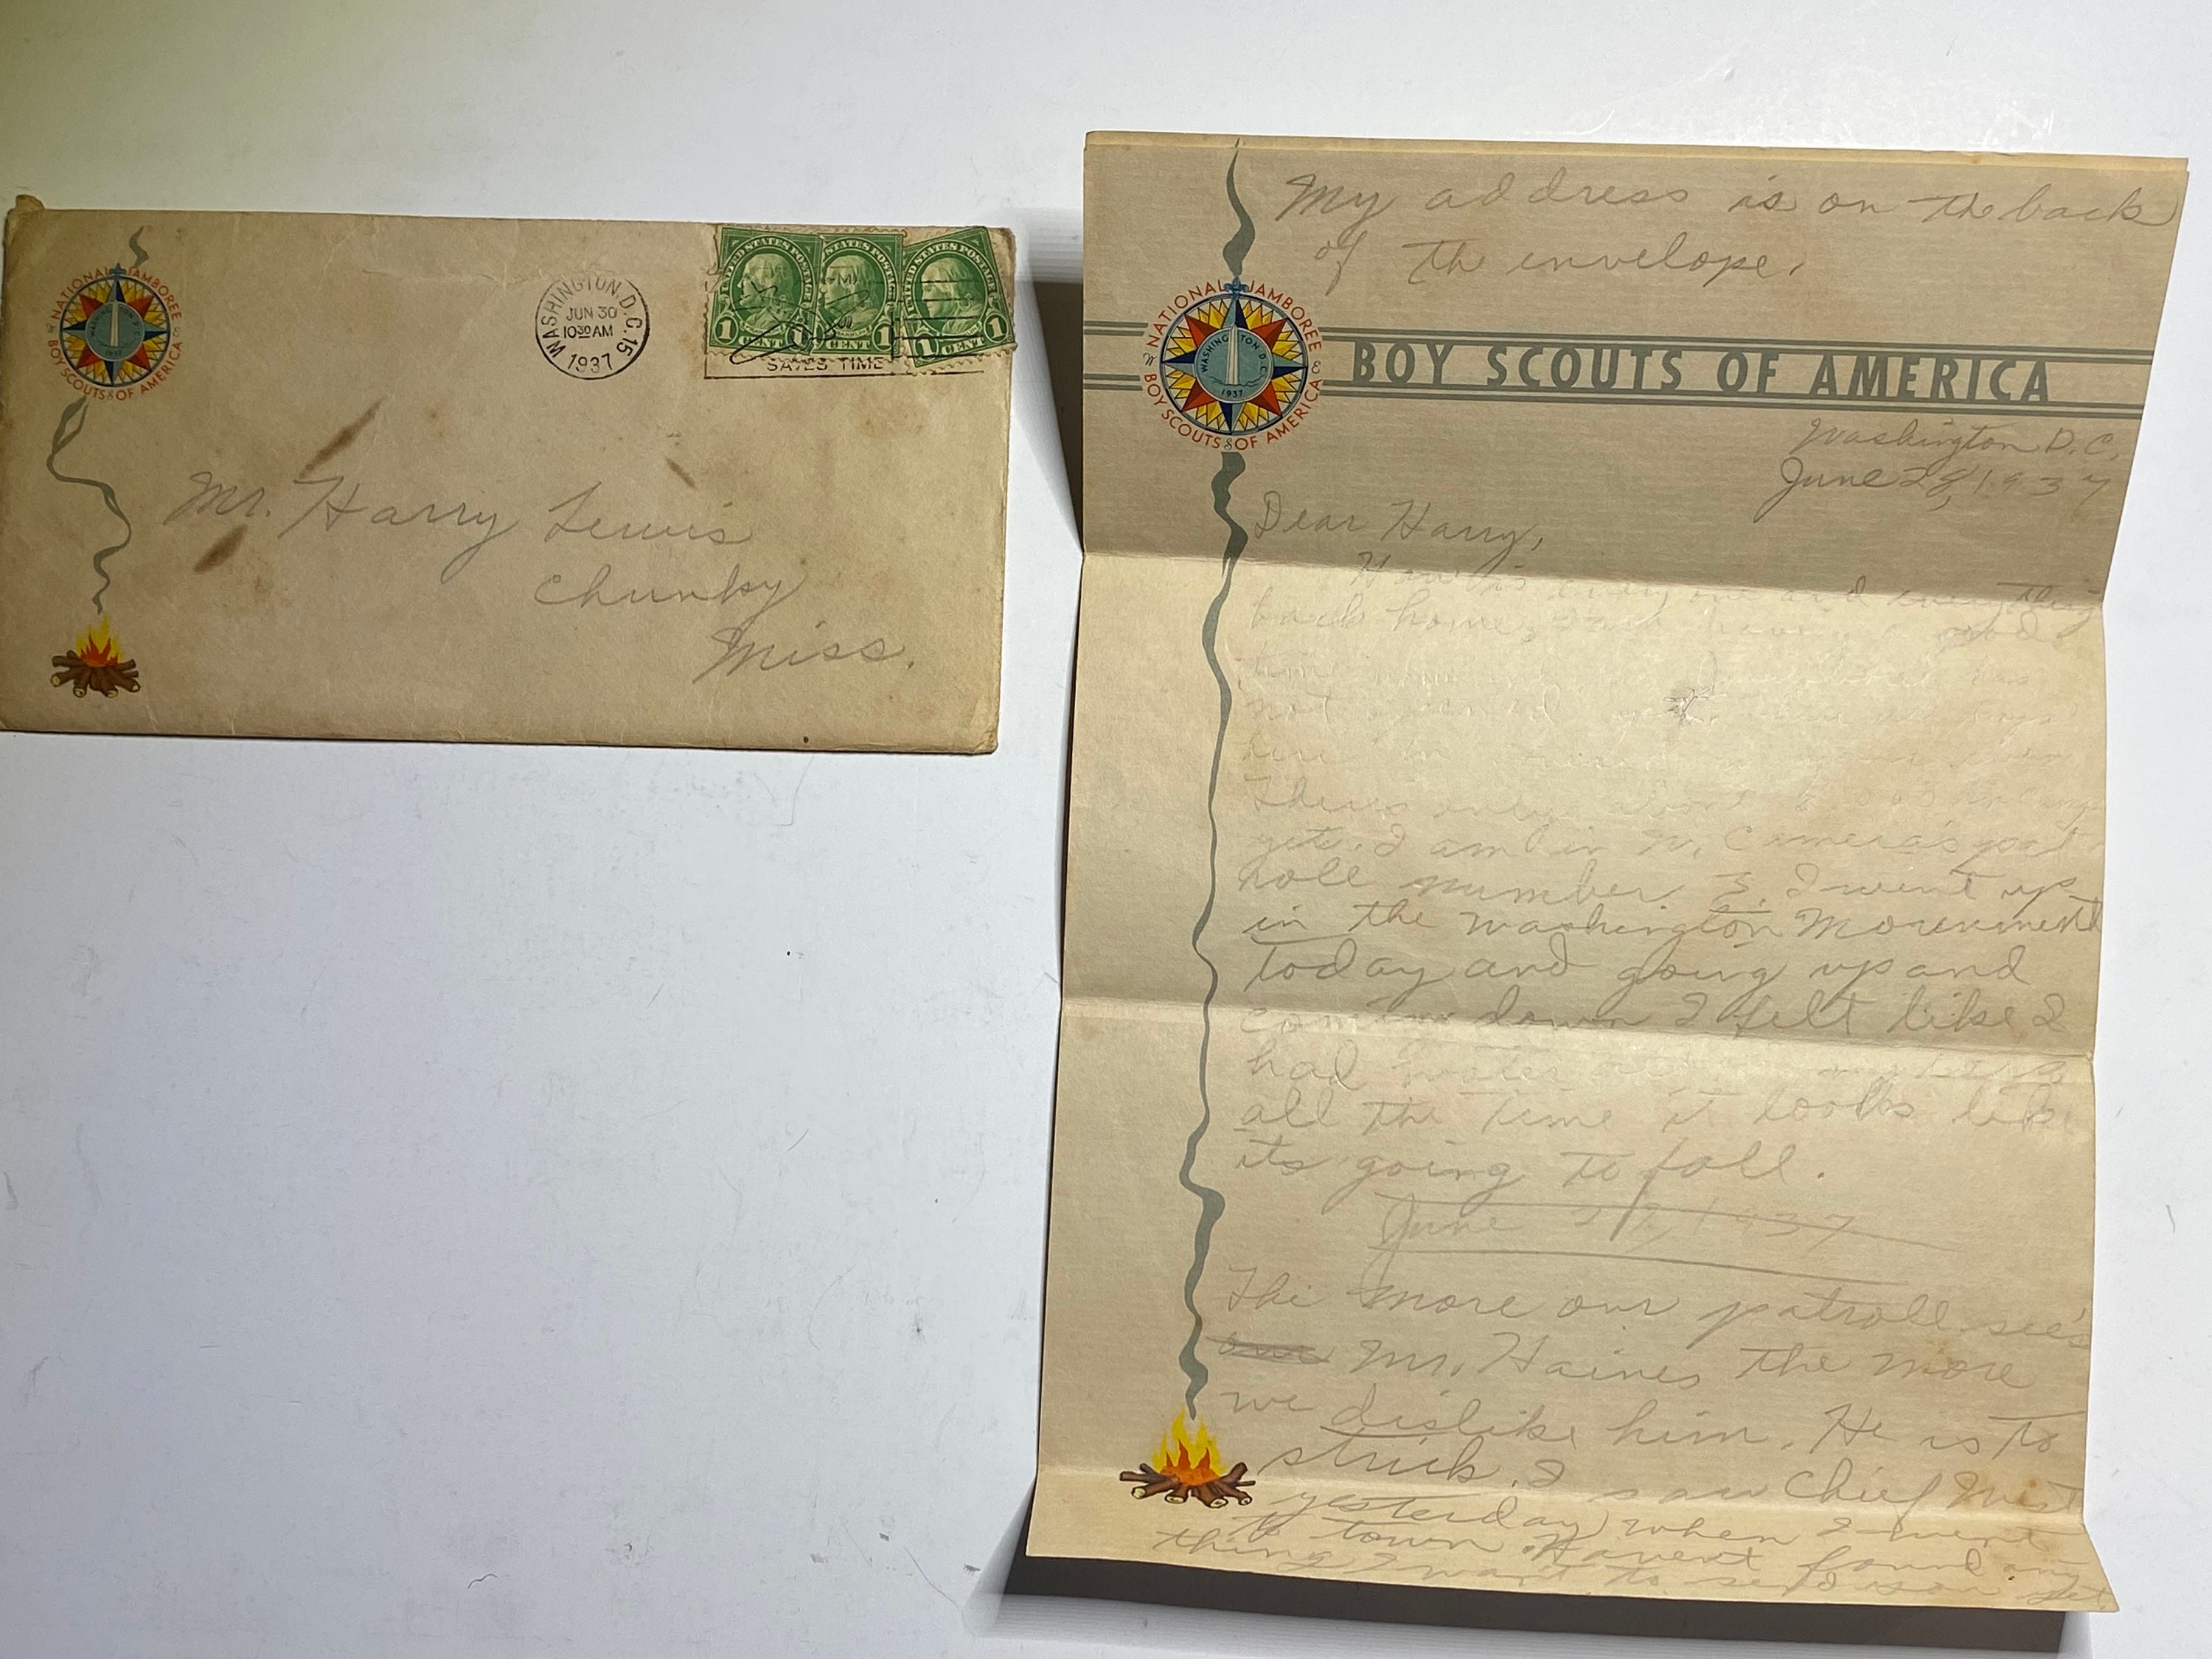 NATIONAL JAMBOREE
BOY SCOUTS OF AMERICA
WASHINGTON D.C.
1937
WASHINGTON, D.C. 15
JUN 30
10 30 AM
1937
UNITED STATES POSTAGE
1 CENT 1
STATES POSTAGE
CENT 1
UNITED STATES POSTAGE
1 CENT 1
SAVES TIME
Mr. Harry Lewis
Chunky
Miss.
My address is on the back
of th envelope.
NATIONAL JAMBOREE
BOY SCOUTS OF AMERICA
WASHINGTON D.C.
1937
BOY SCOUTS OF AMERICA
Washington D.C.
June 28, 1937
Dear Harry,
How is everyone and everything
back home, having a good
time now
not opened yet.
here
There only about 6,000 in camp
yet. I am in
roll number 3. I went up
in the Washington Monument
today and going up and
coming down I felt like I
had water in my ears
all the time it looks like
its going to fall.
June 29, 1937
The more our patroll see's
our Mr. Haines the more
we dislike him. He is to
strick. I saw Chief West
yesterday when I went
to town. Havent found any
thing I want to send you yet.